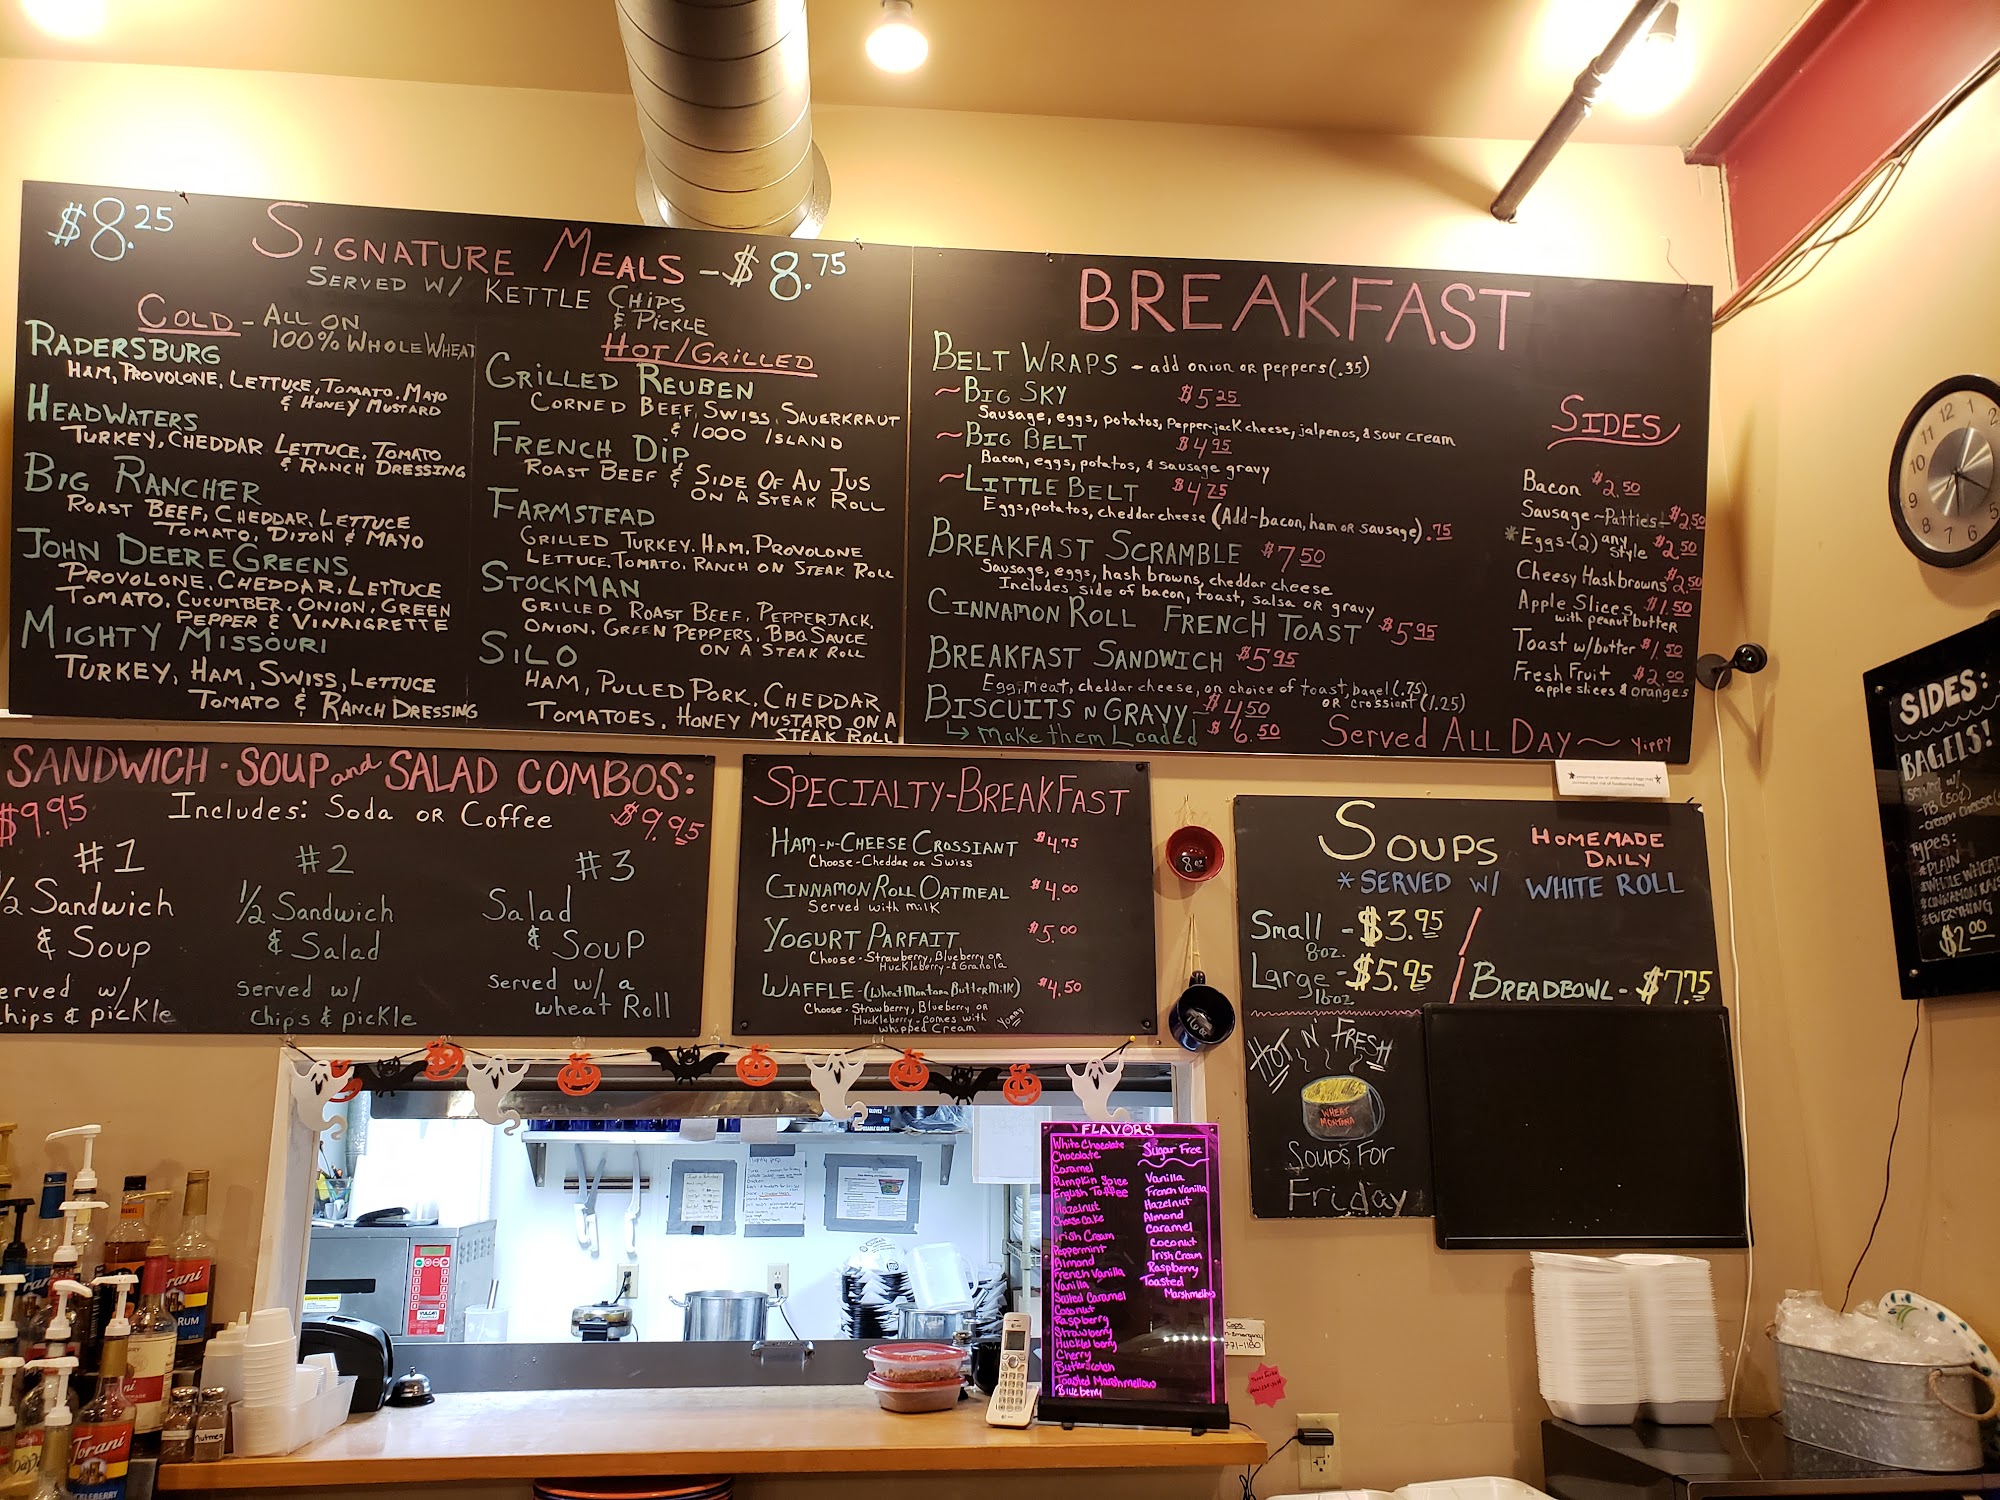 $8.25
SIGNATURE MEALS - $8.75
SERVED W/ KETTLE CHIPS
& PICKLE
COLD - ALL ON
100% WHOLE WHEAT
RADERSBURG
HAM, PROVOLONE, LETTUCE, TOMATO, MAYO
& HONEY MUSTARD
HEADWATERS
TURKEY, CHEDDAR LETTUCE, TOMATO
& RANCH DRESSING
BIG RANCHER
ROAST BEEF, CHEDDAR, LETTUCE
TOMATO, DIJON & MAYO
JOHN DEERE GREENS
PROVOLONE, CHEDDAR, LETTUCE
TOMATO, CUCUMBER, ONION, GREEN
PEPPER & VINAIGRETTE
MIGHTY MISSOURI
TURKEY, HAM, SWISS, LETTUCE
TOMATO & RANCH DRESSING
HOT/GRILLED
GRILLED REUBEN
CORNED BEEF, SWISS, SAUERKRAUT
& 1000 ISLAND
FRENCH DIP
ROAST BEEF & SIDE OF AU JUS
ON A STEAK ROLL
FARMSTEAD
GRILLED TURKEY, HAM, PROVOLONE
LETTUCE, TOMATO, RANCH ON STEAK ROLL
STOCKMAN
GRILLED ROAST BEEF, PEPPERJACK,
ONION, GREEN PEPPERS, BBQ SAUCE
ON A STEAK ROLL
SILO
HAM, PULLED PORK, CHEDDAR
TOMATOES, HONEY MUSTARD ON A
STEAK ROLL
BREAKFAST
BELT WRAPS - add onion or peppers (.35)
~ BIG SKY $5.25
Sausage, eggs, potatos, Pepperjack cheese, jalpenos, & sour cream
~ BIG BELT $4.95
Bacon, eggs, potatos, & sausage gravy
~ LITTLE BELT $4.25
Eggs, potatos, cheddar cheese (Add-bacon, ham or sausage) .75
BREAKFAST SCRAMBLE $7.50
Sausage, eggs, hash browns, cheddar cheese
Includes side of bacon, toast, salsa or gravy
CINNAMON ROLL FRENCH TOAST $5.95
BREAKFAST SANDWICH $5.95
Egg, meat, cheddar cheese, on choice of toast, bagel (.75)
or crossiant (1.25)
BISCUITS N GRAVY $4.50
↳ Make them Loaded $6.50
Served ALL DAY ~ Yippy
SIDES
Bacon $2.50
Sausage ~ Patties - $2.50
*Eggs-(2) any style $2.50
Cheesy Hashbrowns $2.50
Apple Slices $1.50
with peanut butter
Toast w/butter $1.50
Fresh Fruit $2.00
apple slices & oranges
SANDWICH · SOUP and SALAD COMBOS:
$9.95 Includes: Soda or Coffee $9.95
#1
1/2 Sandwich
& Soup
served w/
chips & pickle
#2
1/2 Sandwich
& Salad
served w/
chips & pickle
#3
Salad
& Soup
served w/ a
wheat Roll
SPECIALTY-BREAKFAST
HAM-N-CHEESE CROSSIANT $4.75
Choose - Cheddar or Swiss
CINNAMON ROLL OATMEAL $4.00
Served with milk
YOGURT PARFAIT $5.00
Choose - Strawberry, Blueberry or
Huckleberry - & Granola
WAFFLE - (Wheat Montana ButterMilk) $4.50
Choose - Strawberry, Blueberry or
Huckleberry - comes with
whipped Cream Yummy
8 oz
SOUPS HOMEMADE
DAILY
*SERVED W/ WHITE ROLL
Small - $3.95
8oz.
Large - $5.95
16oz
BREADBOWL - $7.75
HOT N' FRESH
WHEAT
MONTANA
SOUPS FOR
Friday
SIDES:
BAGELS!
served w/
-PB (50¢)
-cream cheese
Types:
*PLAIN
*WHOLE WHEAT
*CINNAMON RAIS
*EVERYTHING
$2.00
12 1 2 5 6 7 8 9 10 11
FLAVORS
White Chocolate
Chocolate
Caramel
Pumpkin Spice
English Toffee
Hazelnut
Cheesecake
Irish Cream
Peppermint
Almond
French Vanilla
Vanilla
Salted Caramel
Coconut
Raspberry
Strawberry
Huckleberry
Cherry
Butterscotch
Toasted Marshmellow
Blueberry
Sugar Free
Vanilla
French Vanilla
Hazelnut
Almond
Caramel
Coconut
Irish Cream
Raspberry
Toasted
Marshmellow
Cops
771-1180
Torani
RUM
Torani
Nutmeg